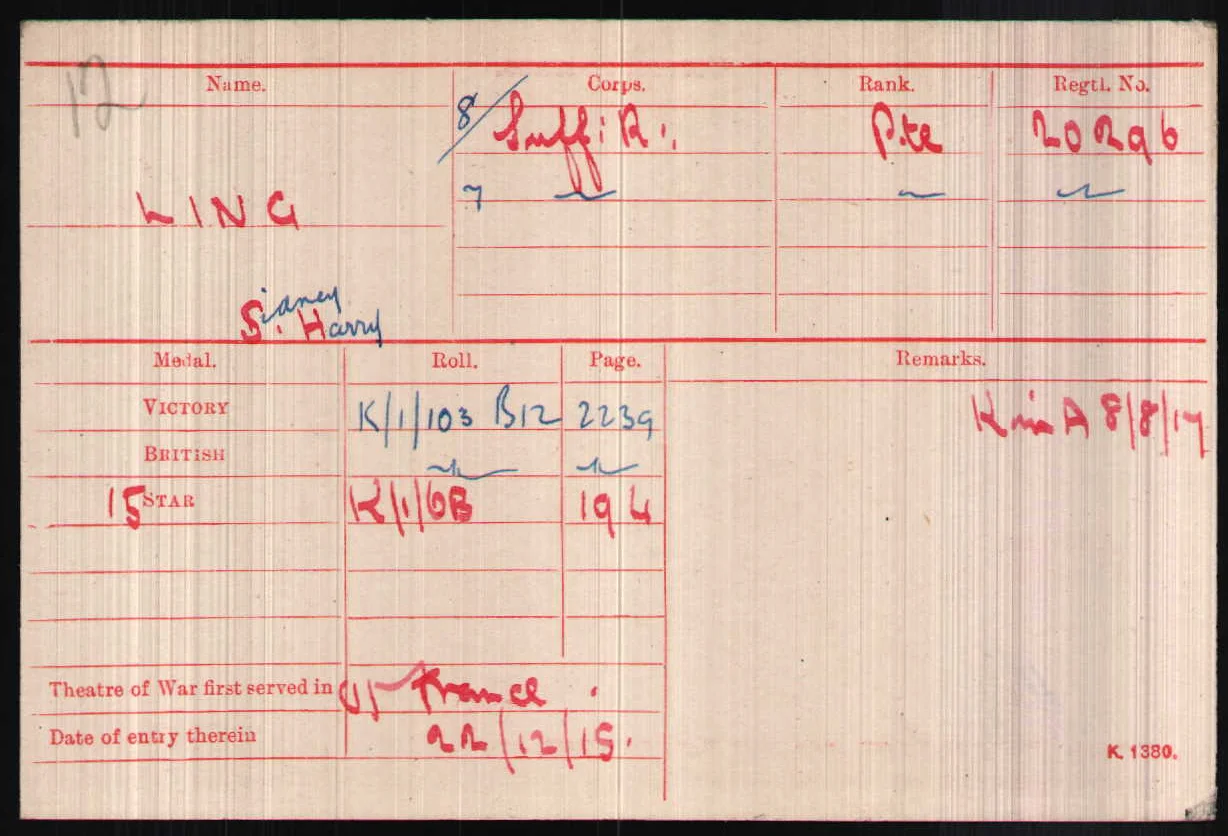 12
Name. Corps. Rank. Regtl. No.
8/ Suff: R. Pte 20296
7 〃 〃 〃
LING
Sidney
S. Harry
Medal. Roll. Page. Remarks.
VICTORY K/1/103 B12 2239 K in A 8/8/17
BRITISH 〃 〃
15 STAR K/1/6B 194
Theatre of War first served in France.
Date of entry therein 22/12/15.
K. 1380.